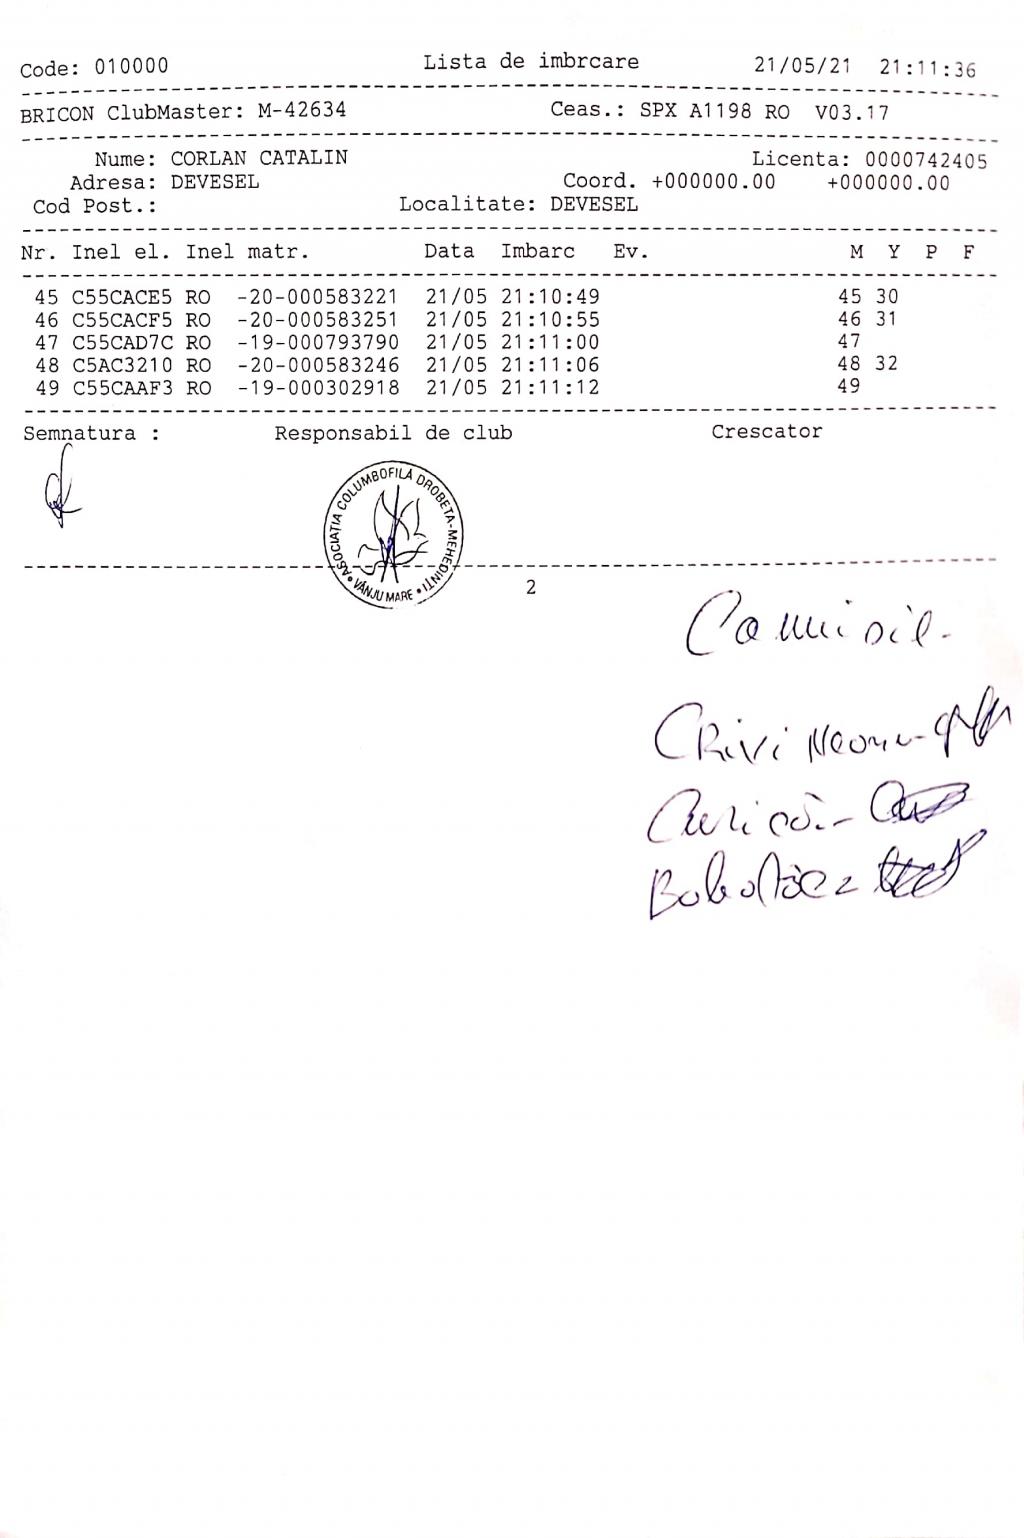 Code: 010000 Lista de imbrcare 21/05/21 21:11:36
BRICON ClubMaster: M-42634 Ceas.: SPX A1198 RO V03.17
Nume: CORLAN CATALIN Licenta: 0000742405
Adresa: DEVESEL Coord. +000000.00 +000000.00
Cod Post.: Localitate: DEVESEL
Nr. Inel el. Inel matr. Data Imbarc Ev. M Y P F
45 C55CACE5 RO -20-000583221 21/05 21:10:49 45 30
46 C55CACF5 RO -20-000583251 21/05 21:10:55 46 31
47 C55CAD7C RO -19-000793790 21/05 21:11:00 47
48 C5AC3210 RO -20-000583246 21/05 21:11:06 48 32
49 C55CAAF3 RO -19-000302918 21/05 21:11:12 49
Semnatura : Responsabil de club Crescator
ASOCIAȚIA COLUMBOFILĂ DROBETA-MEHEDINȚI
• VÂNJU MARE •
2